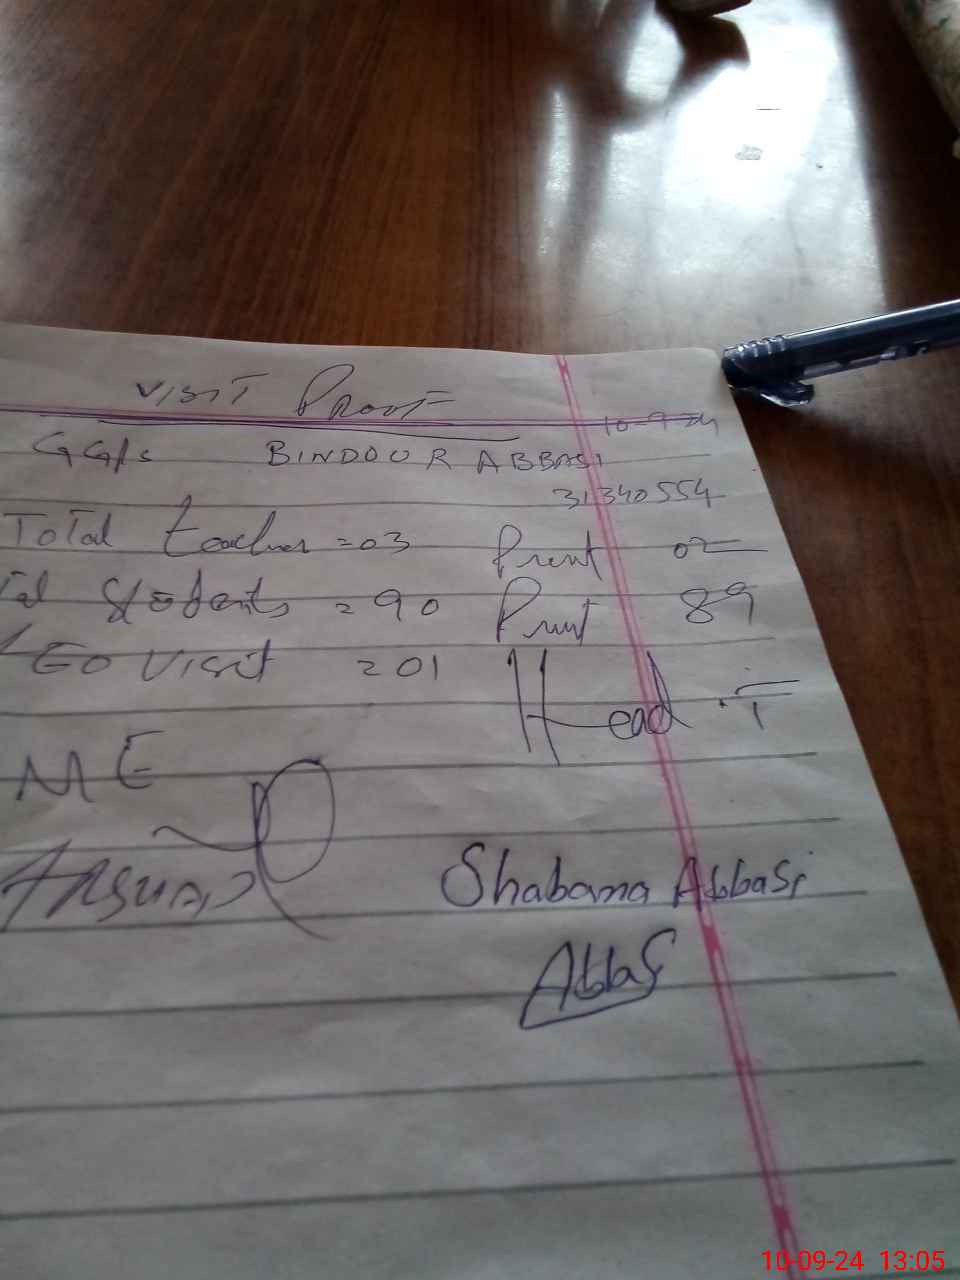 VISIT PROOF
10-9-24
GG/s BINDOUR ABBASI
31340554
Total teacher =03 Prsnt 02
Students =90 Prsnt 89
EO Visit =01
Head.T
ME
Shabana Abbasi
Abbasi
10-09-24 13:05